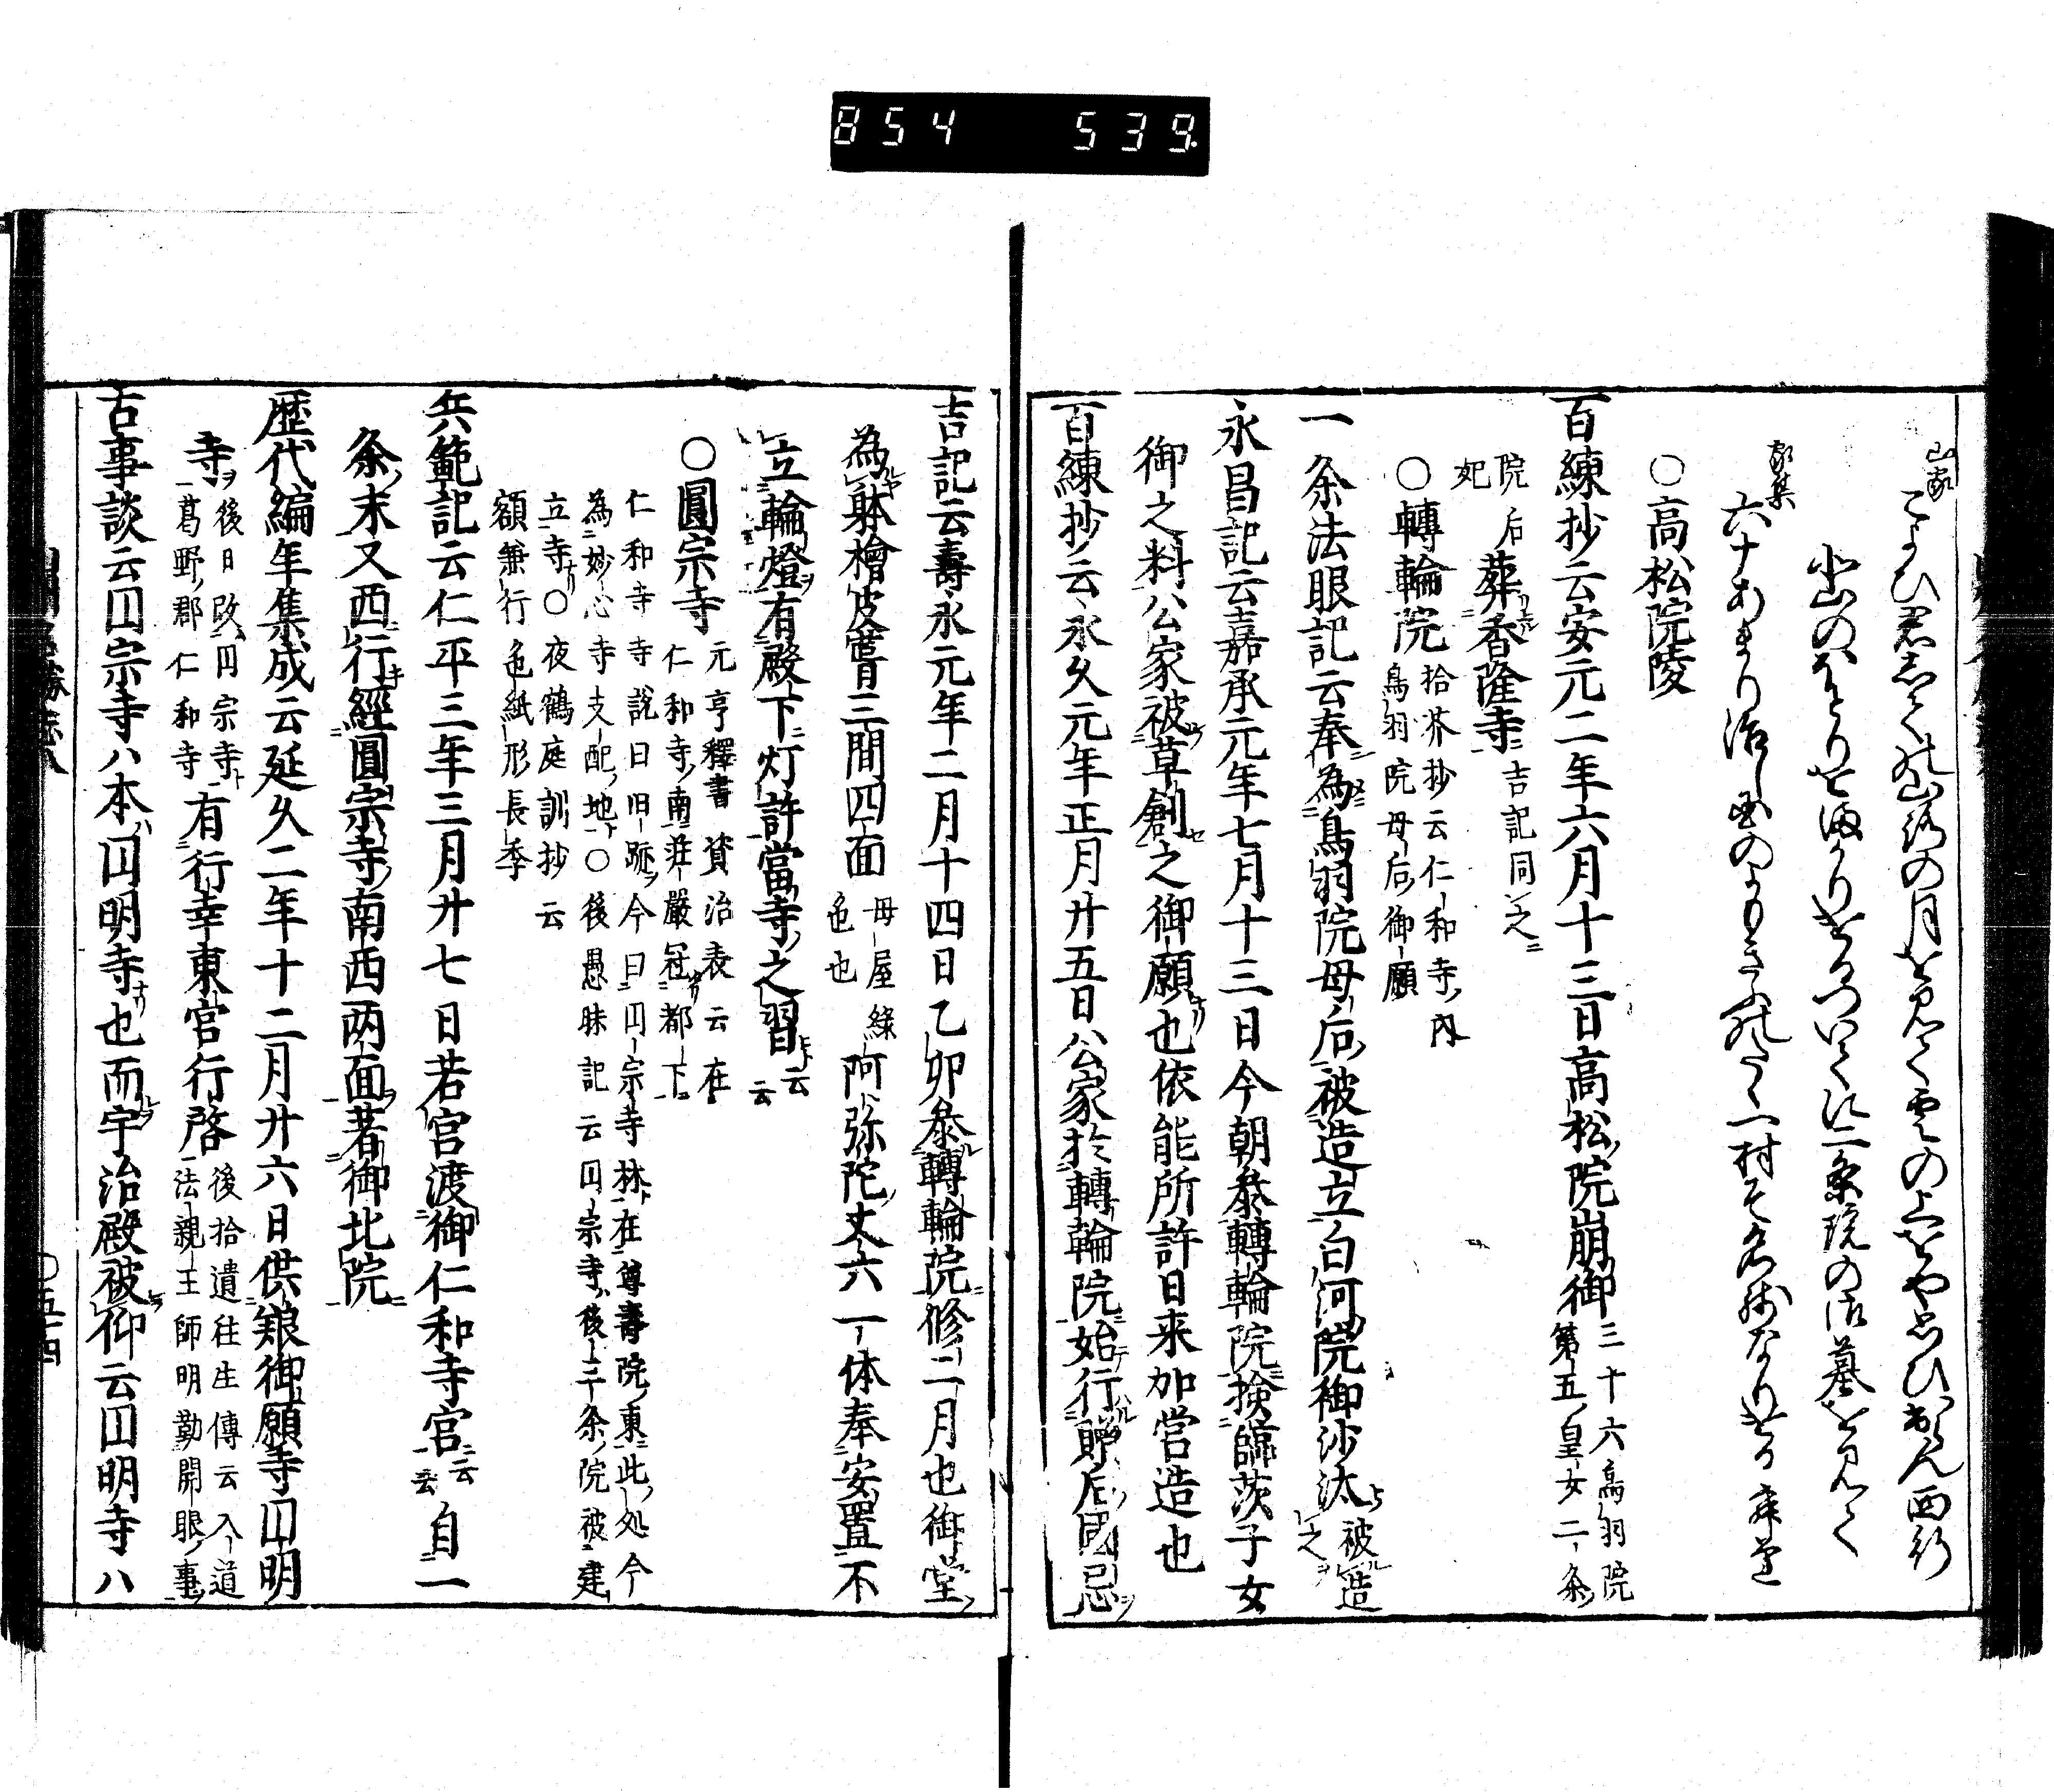 854 539
山家 こよひ君しての山路の月をみて雲の上をや思ひ出らん 西行
山のほとりをまかりけるついてに二条院の御墓をみて
家集 六十あまり
○高松院陵
百練抄云安元二年六月十三日高松院崩御三十六鳥羽院第五皇女二条
院后妃葬香隆寺吉記同之
○轉輪院拾芥抄云仁和寺内鳥羽院母后御願
一条法眼記云奉為鳥羽院母后被造立白河院御沙汰被造之
永昌記云嘉承元年七月十三日今朝参轉輪院検臨茨子女
御之料公家被草創之御願也依能所許日来加営造也
百練抄云永久元年正月廿五日公家於轉輪院始行贈后國忌
吉記云壽永元年二月十四日乙卯参轉輪院修二月也御堂
為躰檜皮葺三間四面母屋緑色也阿弥陀丈六一体奉安置不
立輪燈有殿下灯許當寺之習云云
○圓宗寺元亨釋書資治表云在仁和寺南荘嚴冠都下
仁和寺寺説曰旧跡今曰円宗寺林在尊壽院東此処今
為妙心寺支配地○後愚昧記云円宗寺後三条院被建
立寺○夜鶴庭訓抄云
額兼行色紙形長季
兵範記云仁平三年三月廿七日若宮渡御仁和寺宮云云自一
条末又西行經圓宗寺南西両面著御北院
歴代編年集成云延久二年十二月廿六日供粮御願寺円明
寺後日改円宗寺葛野郡仁和寺有行幸東宮行啓後拾遺往生傳云入道法親王師明勤開眼事
古事談云円宗寺ハ本ハ円明寺也而宇治殿被仰云円明寺ハ
五十四